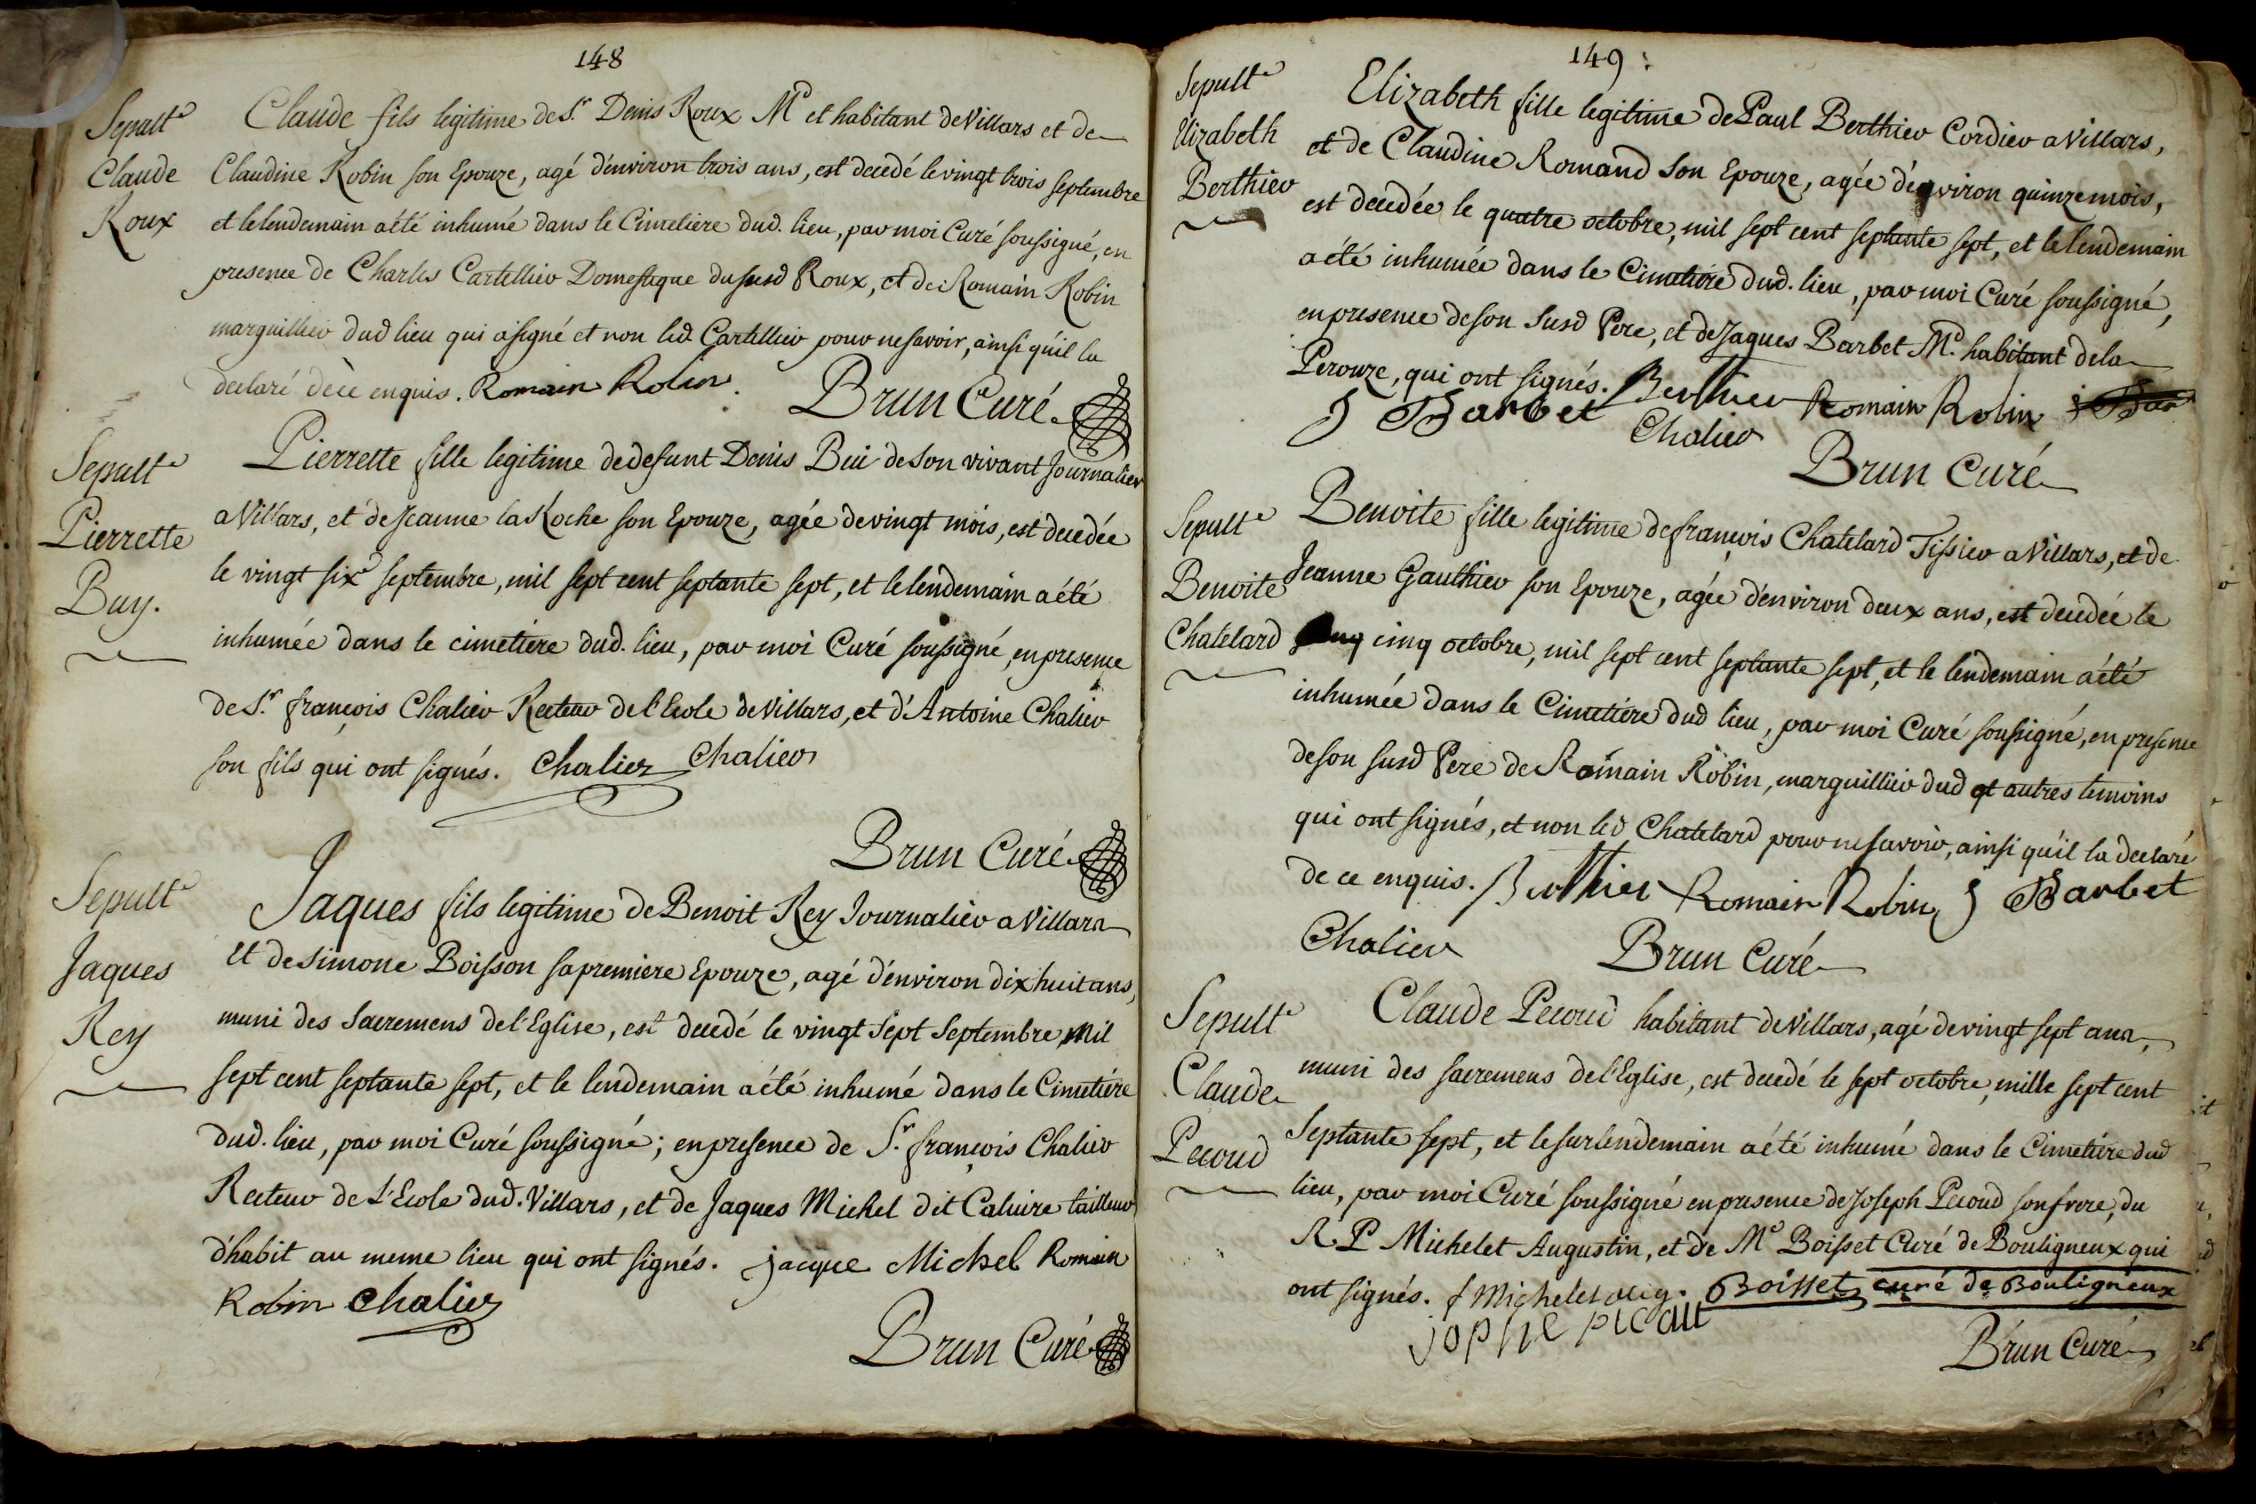 148
Sepult.e
Claude
Roux
Claude fils legitime de Sr. Denis Roux Md et habitant de Villars et de
Claudine Robin son Epouze, agé d'environ trois ans, est decedé le vingt trois septembre
et le lendemain a été inhumé dans le Cimetiere dud. lieu, par moi Curé soussigné, en
presence de Charles Cartellier Domestique du susd Roux, et de Romain Robin
marguillier dud lieu qui a signé et non led Cartellier pour ne savoir, ainsi qu'il la
declaré de ce enquis. Romain Robin.
Brun Curé
Sepult.e
Pierrette
Buy.
Pierrette fille legitime de defunt Denis Bui de son vivant Journalier
a Villars, et de Jeanne la Roche son Epouze, agée de vingt mois, est decedée
le vingt six septembre, mil sept cent septante sept, et le lendemain a été
inhumée dans le cimetiere dud. lieu, par moi Curé soussigné, en presence
de Sr. françois Chalier Recteur de l'Ecole de Villars, et d'Antoine Chalier
son fils qui ont signés. Chalier Chalier
Brun Curé
Sepult.e
Jaques
Rey
Jaques fils legitime de Benoit Rey Journalier a Villars
et de Simone Boisson sa premiere Epouze, agé d'environ dixhuit ans,
muni des Sacremens de l'Eglise, est decedé le vingt Sept Septembre Mil
sept cent septante sept, et le lendemain a été inhumé dans le Cimetiére
dud. lieu, par moi Curé soussigné; en presence de Sr. françois Chalier
Recteur de L'Ecole dud. Villars, et de Jaques Michel dit Caluire tailleur
d'habit au meme lieu qui ont signés. jacque Michel Romain
Robin Chalier
Brun Curé
149
Sepult.e
Elizabeth
Berthier
Elizabeth fille legitime de Paul Berthier Cordier a Villars,
et de Claudine Romand son Epouze, agée d'environ quinze mois,
est decedée le quatre octobre, mil sept cent septante sept, et le lendemain
a été inhumée dans le Cimetiére dud. lieu, par moi Curé soussigné,
en presence de son susd Pere, et de Jaques Barbet Md. habitant de la
Perouze, qui ont signés. Berthier Romain Robin
J Barbet Chalier
Brun Curé
Sepult.e
Benoite
Chatelard
Benoite fille legitime de françois Chatelard Tissier a Villars, et de
Jeanne Gauthier son Epouze, agée d'environ deux ans, est decedée le
cinq octobre, mil sept cent septante sept, et le lendemain a été
inhumée dans le Cimetiére dud lieu, par moi Curé soussigné, en presence
de son susd Pere de Romain Robin, marguillier dud et autres temoins
qui ont signés, et non led Chatelard pour ne savoir, ainsi qu'il la declaré
de ce enquis. Berthier Romain Robin J Barbet
Chalier
Brun Curé
Sepult.e
Claude
Pecoud
Claude Pecoud habitant de Villars, agé de vingt sept ans,
muni des sacremens de l'Eglise, est decedé le sept octobre, mille sept cent
Septante sept, et le surlendemain a été inhumé dans le Cimetiére dud
lieu, par moi Curé soussigné en presence de Joseph Pecoud son frere, du
R. P Michelet Augustin, et de Mr Boisset Curé de Bouligneux qui
ont signés. f Michelet aug. Boisset curé de Bouligneux
jophe picaut
Brun Curé